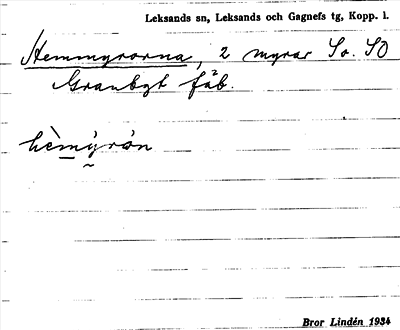 Leksands sn, Leksands och Gagnefs tg, Kopp. l.
Hemmyrorna, 2 myrar So. SO
Granbgt fäb.
hèmýrὰn
Bror Lindén 1934